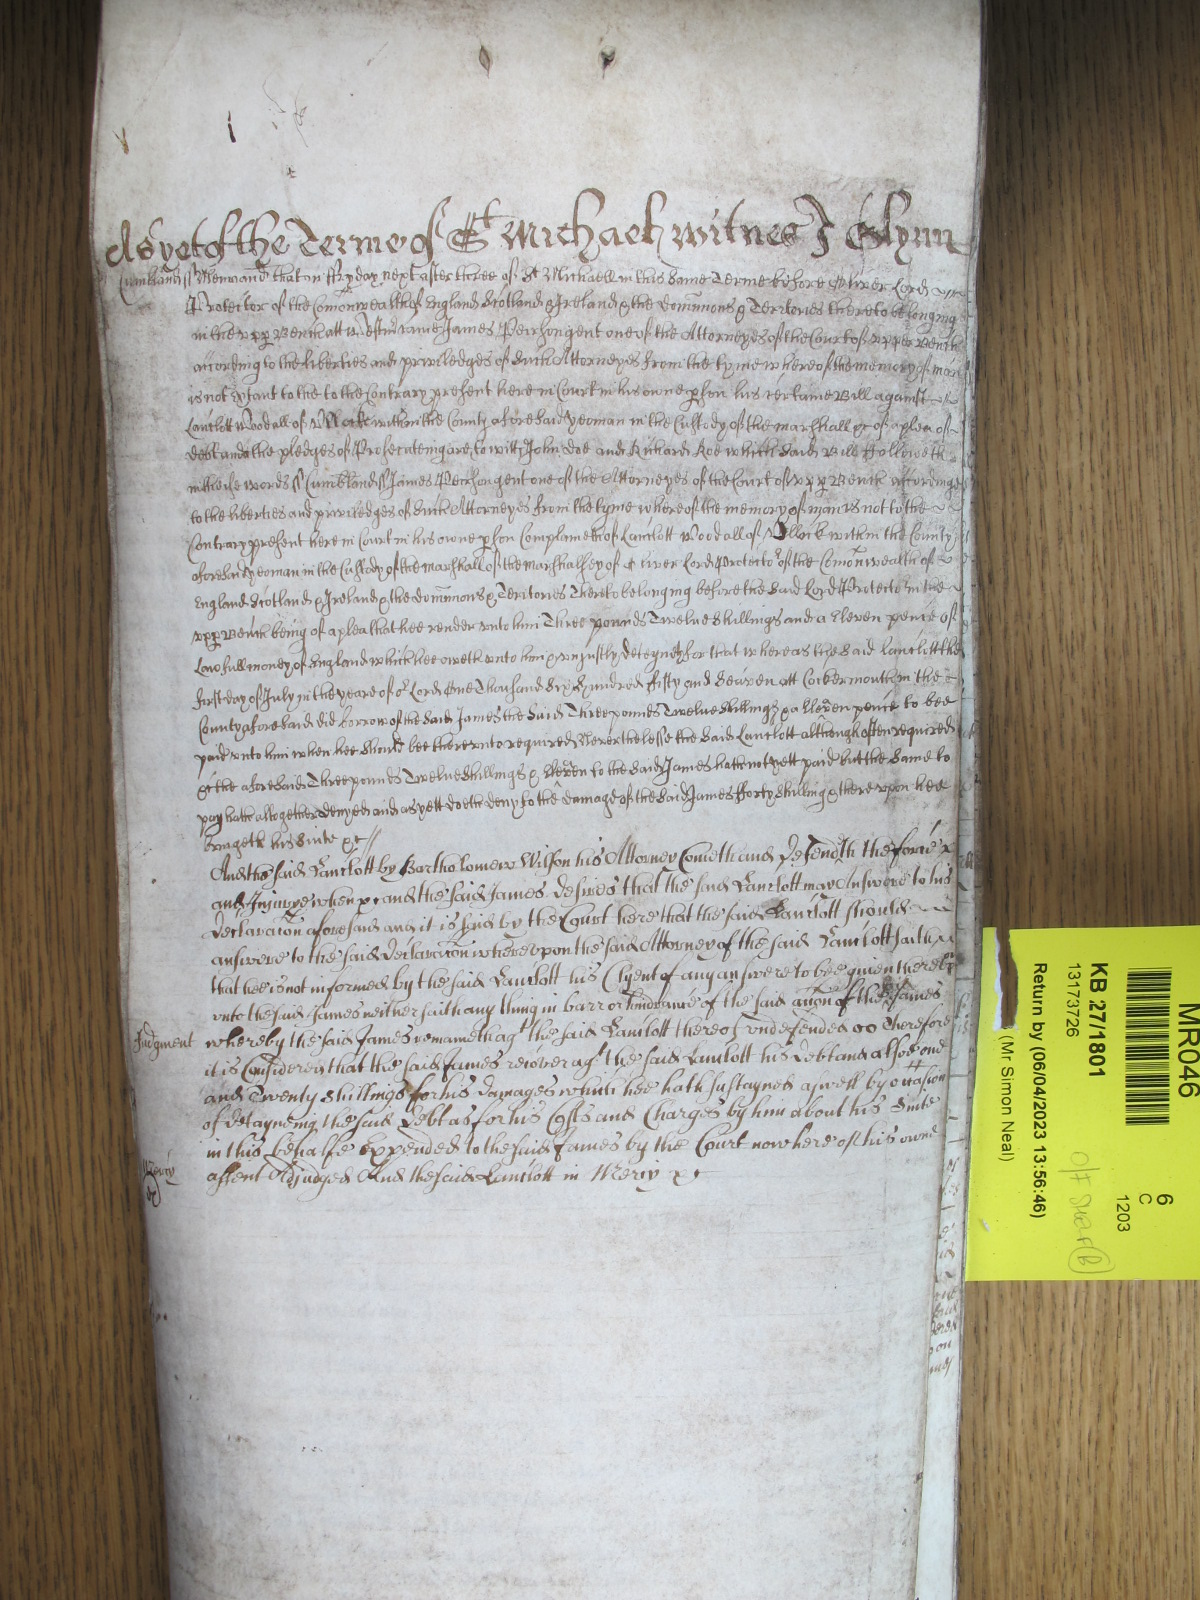 As yet of the Terme of St Michaell witnes J Glynn
Cumbland ss Memorand that on Fryday next after three of St Michaell in this same Terme before Oliver Lord
Protector of the Comonwealth of England Scotland & Ireland & the dominions & Territories thereto belonging
in the upp Bench att Westm came James Pearson gent one of the Attorneyes of the Court of upper Bench
according to the liberties and priviledges of such Attorneyes from the tyme whereof the memory of man
is not extant to the to the Contrary present here in Court in his owne pson his certaine Bill against
Lanclott Woodall of Ullock within the County aforesaid yeoman in the Custody of the marshall &c of a plea of
debt and the pledges of Prosecuteing are to witt John Doe and Richard Roe which said Bill followeth
in these words ss Cumbland ss James Pearson gent one of the Attorneyes of the Court of upp Bench according
to the liberties and priviledges of such Attorneyes from the tyme whereof the memory of man is not to the
Contrary present here in Court in his owne pson Complaineth of Lanclott Woodall of Ullock within the County
aforesaid yeoman in the Custody of the marshall of the marshalsey of Oliver Lord Protector of the Comonwealth of
England Scotland & Ireland & the dominions & Territories Thereto belonging before the said Lord Protector in the
upp Bench being of a plea that hee render unto him Three pounds Twelve shillings and a Eleven pence of
Lawfull money of England which hee oweth unto him & uniustly deteyneth for that whereas the said Lanclott the
first day of July in the yeare of or Lord One Thousand Six hundred fifty and Seaven att Cockermouth in the
County aforesaid did borrow of the said James the said Three pounds Twelve shillings & a Eleven pence to bee
paid unto him when hee should bee thereunto required Neverthelesse the said Lanclott although often required
&c the aforesaid Three pounds Twelve shillings & Eleven to the said James hath not yett paid but the same to
pay hath altogether denyed and as yett doeth deny to the damage of the said James fforty shillings & thereupon hee
bringeth his suite &c
And the said Lanclott by Bartholomew Wilson his Attorney Cometh and Defendth the force &
and Iniurye when &c and the said James desires that the said Lanclott may Answere to his
declaracon aforesaid and it is said by the Court here that the said Lanclott should
answere to the said declaracon whereupon the said Attorney of the said Lanclott saith
that hee is not informed by the said Lanclott his Clyent of any answere to bee given thereby
unto the said James neither saith any thing in barr or hindrance of the said accon of the James
Judgment whereby the said James remaineth agt the said Lanclott thereof undefended oo Therefore
it is Considered that the said James recover agt the said Lanclott his debt and alsoe one
and Twenty shillings for his damages which hee hath sustayned aswell by occasion
of detayneing the said debt as for his Costs and Charges by him about his Suite
in this behalfe Expended to the said James by the Court now here of his owne
Mercy assent Adjudged And the said Lanclott in Mercy &c
MR046
6
C
1203
KB 27/1801
13173726
Return by (06/04/2023 13:56:46)
(Mr Simon Neal)